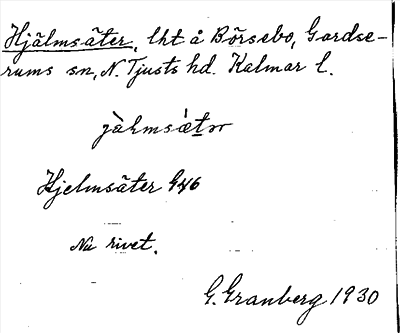 Hjälmsäter, lht å Börsebo, Gardse-
rums sn, N. Tjusts hd. Kalmar l.
Hjelmsäter G46
Nu rivet.
G. Granberg 1930